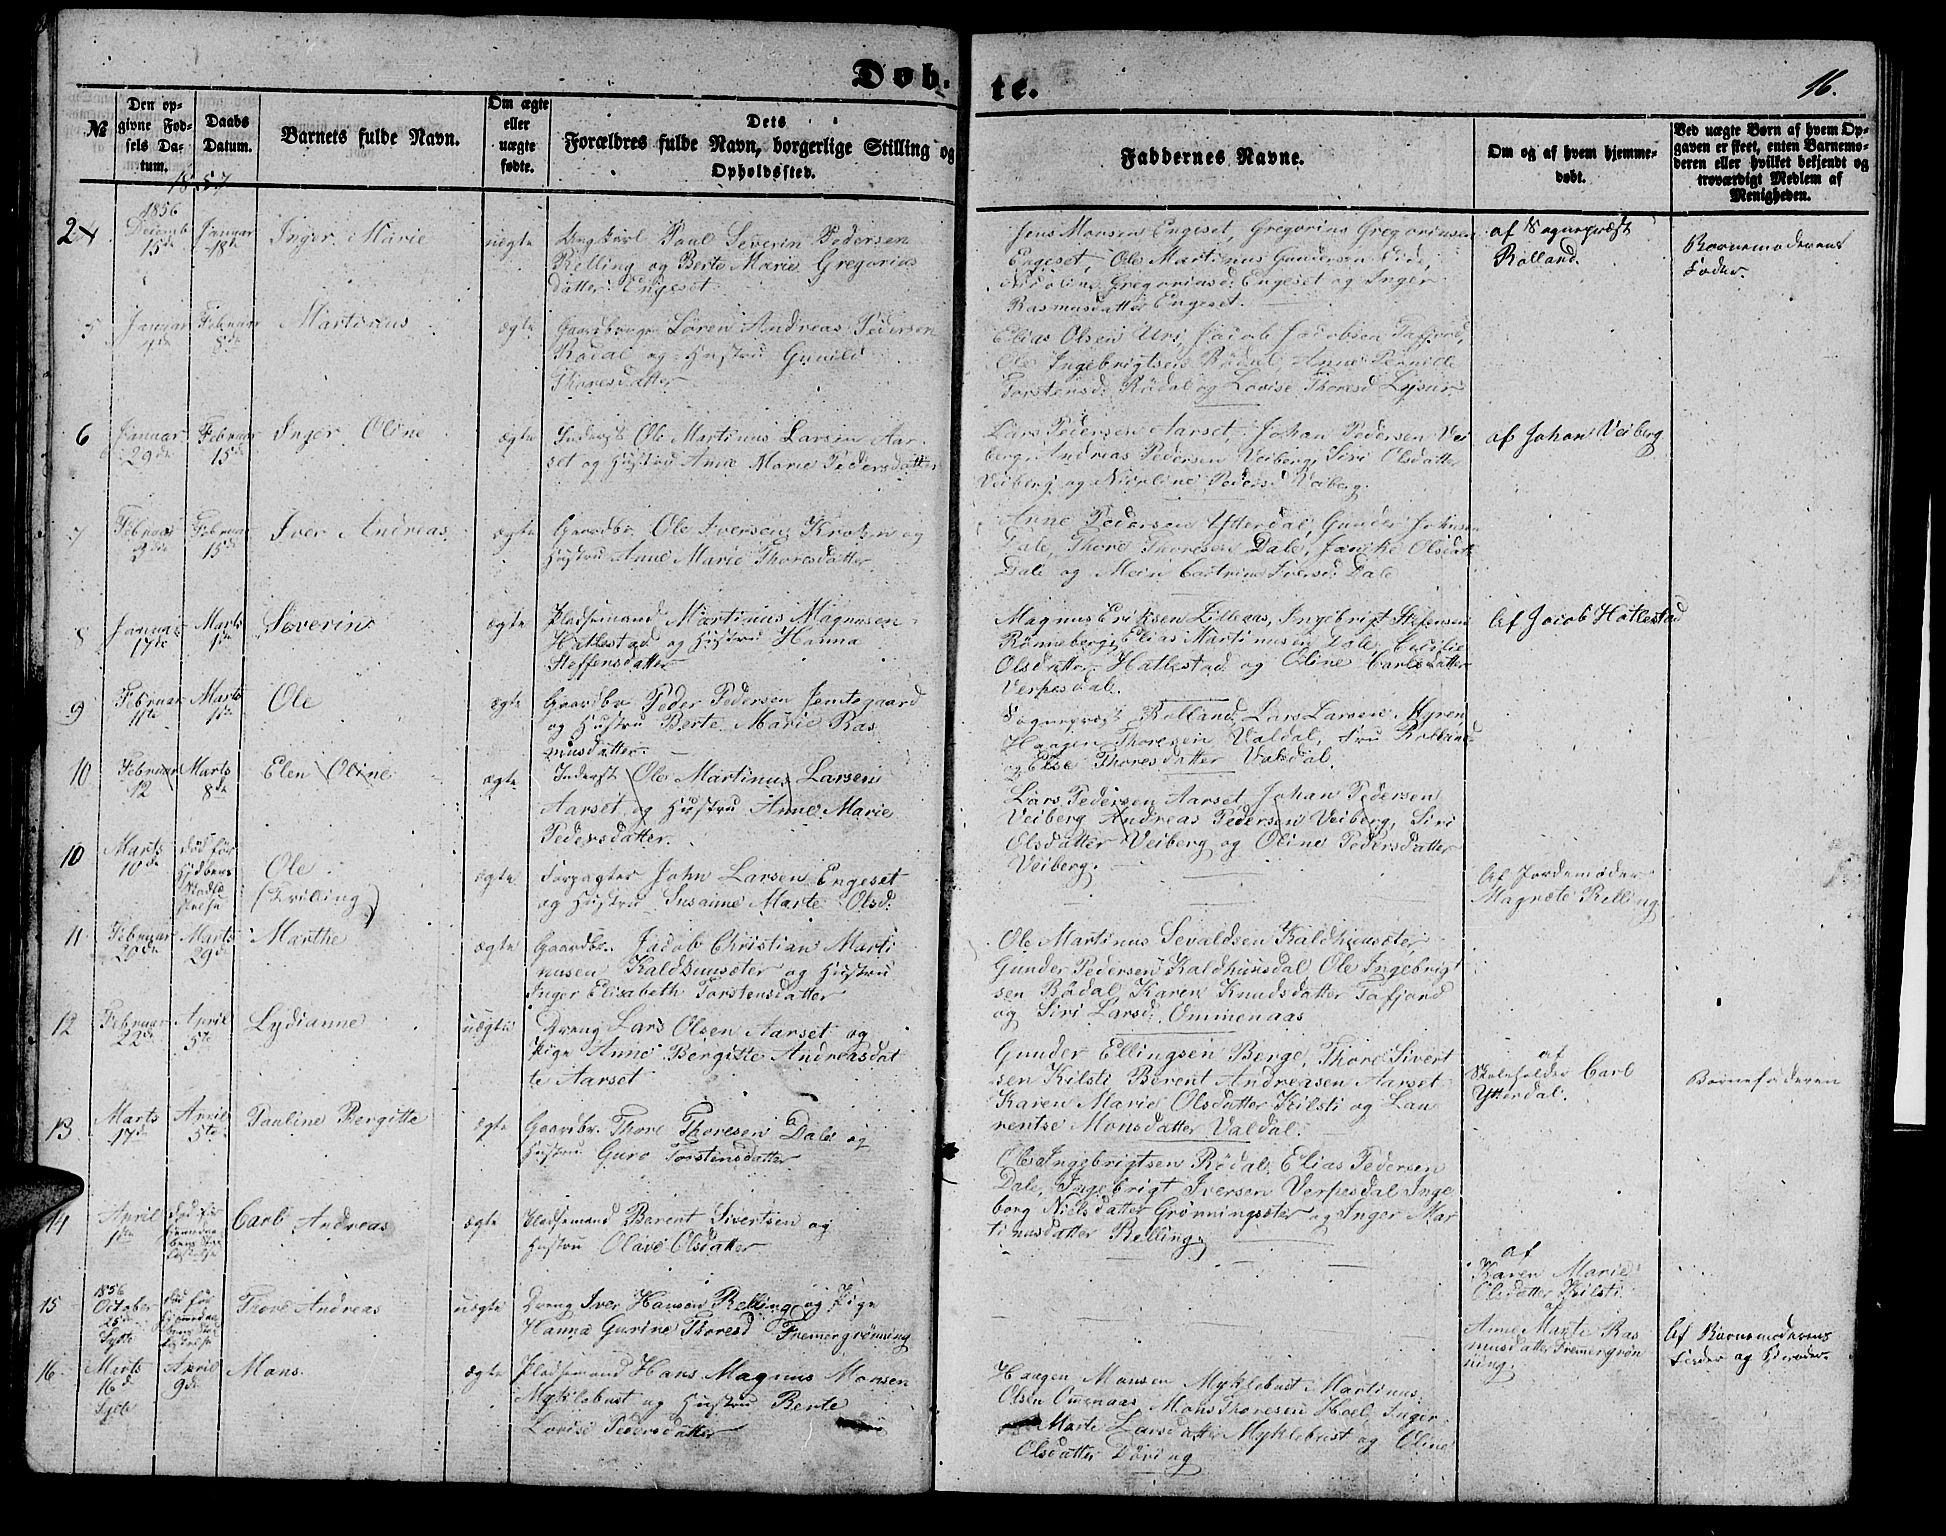 Døb-
te.
16.
№
Den op-
givne Fød-
sels Da-
tum.
Daabs
Datum.
Barnets fulde Navn.
Om ægte
eller
uægte
fødte.
Dets
Forældres fulde Navn, borgerlige Stilling og
Opholdssted.
Faddernes Navne.
Om og af hvem hjemme-
døbt.
Ved uægte Børn af hvem Op-
gaven er skeet, enten Barnemo-
deren eller hvilket bekjendt og
troværdigt Medlem af
Menigheden.
1857
1856
Decemb
15de
Januar
18de
Inger Marie
uægte
Ungkarl Paul Severin Pedersen
Relling og Berte Marie Gregorius
datter Engeset
Jens Monsen Engeset, Gregorius Gregoriusen
Engeset, Ole Martinus Gundersen
Gregoriusd: Engeset og Inger
Rasmusdatter Engeset.
af Sognepræst
Rolland.
Barnemoderens
Fader.
5
Januar
Februar
8de
Martinus
ægte
Gaardbruger Søren Andreas Pedersen
Rødal og Hustru Gunild
Thoresdatter
Elias Olsen Uri, Jacob Jacobsen Tafjord,
Ole Ingebrigtsen Rødal, Anne Pernille
Torstensd: Rødal og Lovise Thoresd
6
Januar
29de
Februar
15de
Inger Oline
ægte
Inderst Ole Martinus Larsen Aar-
set og Hustru Anne Marie Pedersdatter
Lars Pedersen Aarset, Johan Pedersen Vei
berg, Andreas Pedersen Veiberg, Siri Olsdatter
Veiberg og Nicoline Pedersd Veiberg.
af Johan Veiberg
7
Februar
Februar
15de
Iver Andreas
ægte
Gaardbr Ole Iversen Kroken og
Hustru Anne Marie Thoresdatter
Arne Pedersen Ytterdal, Gunder Johnsen
Dale, Thore Thoresen Dale, Janike Olsdatt
Dale og Cathrine Iversd: Dale
8
Januar
17de
Marts
1ste
Severine
ægte
Pladsemand Martinus Magnusen
Hatlestad og Hustru Hanna
Steffensdatter
Magnus Eriksen Lilleaas, Ingebrigt Steffensen
Rønneberg, Elias Martinusen Dale, Cecilie
Olsdatter Hatlestad og Oline Carlsdatter
Verpesdal.
Af Jacob Hatlestad
9
Februar
11te
Marts
1ste
Ole
ægte
Gaardbr Peder Pedersen Jemtegaard
og Hustru Berte Marie Ras
musdatter.
Sognepræst Rolland, Lars Larsen Myren,
Haagen Thoresen Valdal, Fru Rolland
og Else Thoresdatter Valdal.
10
Februar
12
Marts
8de
Elen Oline
ægte
Inderst Ole Martinus Larsen
Aarset og Hustru Anne Marie
Pedersdatter.
Lars Pedersen Aarset, Johan Pedersen
Veiberg Andreas Pedersen Veiberg, Siri
Olsdatter Veiberg og Oline Pedersdatter
Veiberg.
10
Marts
10de
Død før
Ole
(Trilling)
ægte
Forpagter John Larsen Engeset
og Hustru Susanne Marte Olsd:
Af Jordemoder
Magnete Relling
11
Februar
20de
Marts
29de
Marthe
ægte
Gaardbr. Jacob Christian Marti
nusen Kaldhuusæter og Hustru
Inger Elisabeth Torstensdatter
Ole Martinus Sevaldsen Kaldhuusæter,
Gunder Pedersen Kaldhuusdal, Ole Ingebrigt
sen Rødal, Karen Knudsdatter Tafjord
og Siri Larsd: Ommenaas
12
Februar
22de
April
5te
Lydianne
uægte
Dreng Lars Olsen Aarset og
Pige Anne Bergitte Andreasdat
te Aarset
Gunder Ellingsen Berge, Thore Sivert
sen Kilsti Berent Andreasen Aarset
Karen Marie Olsdatter Kilsti og Lau
rentse Monsdatter Valdal.
af
Skoleholder Carl
Ytterdal.
Barnefaderen
13
Marts
17de
April
5te
Pauline Bergitte
ægte
Gaardbr. Thore Thoresen Dale og
Hustru Guro Torstensdatter
Ole Ingebrigtsen Rødal, Elias Pedersen
Dale, Ingebrigt Iversen Verpesdal Inge
borg Nielsdatter Grønningsæter og Inger Mar
tinusdatter Relling.
14
April
1ste
Død før
Carl Andreas
ægte
Pladsemand Berent Sivertsen og
Hustru Olave Olsdatter
af
Karen Marie
Olsdatter Kilsti.
15
1856
October
25de
Sylte
Thore Andreas
uægte
Dreng Iver Hansen Relling og Pige
Hanna Gurine Thoresd Fremergrønning
af
Anne Marte Ras
musdatter Fremergrøn
ning.
Af Barnemoderens
Fader og
16
Marts
16de
Sylte
April
9de
Mons.
ægte
Pladsemand Hans Magnus Monsen
Myklebust og Hustru Berte
Lovise Pedersdatter
Haagen Monsen Myklebust, Martinus
Olsen Ommenaas, Mons Thoresen Hoel, Inger
Marte Larsdatter Myklebust og Oline
Olsdatter Døving